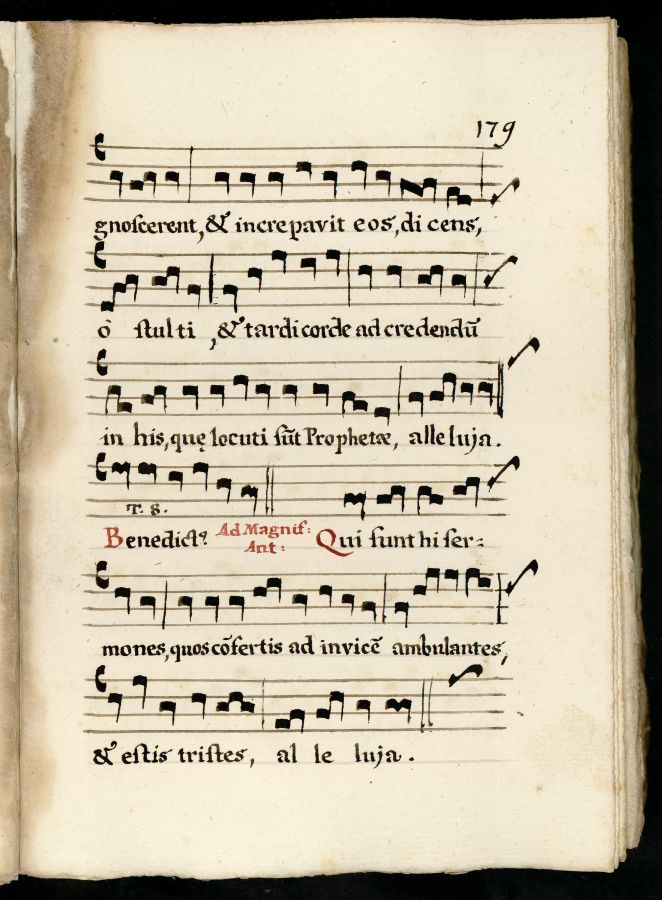 179
gnoſcerent, & increpavit eos, di cens,
ò ſtulti, & tardi corde ad credendū
in his, quę locuti ſūt Prophetæ, alleluja.
T. 8.
Benedict9 Ad Magnif: Ant: Qui ſunt hi ſer-
mones, quos cōfertis ad invicē ambulantes,
& eſtis triſtes, al le luja.